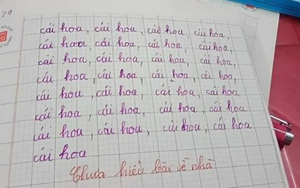 cái hoa, cái hoa, cái hoa cái hoa,
cái hoa cái hoa, cái hoa, cái hoa,
cái hoa, cái hoa, cái hoa, cái hoa,
cái hoa, cái hoa, cái hoa, cái hoa,
cái hoa, cái hoa, cái hoa, cái hoa
cái hoa, cái hoa, cái hoa, cái hoa
cái hoa, cái hoa, cái hoa, cái hoa
cái hoa
Chưa hiểu bài về nhà